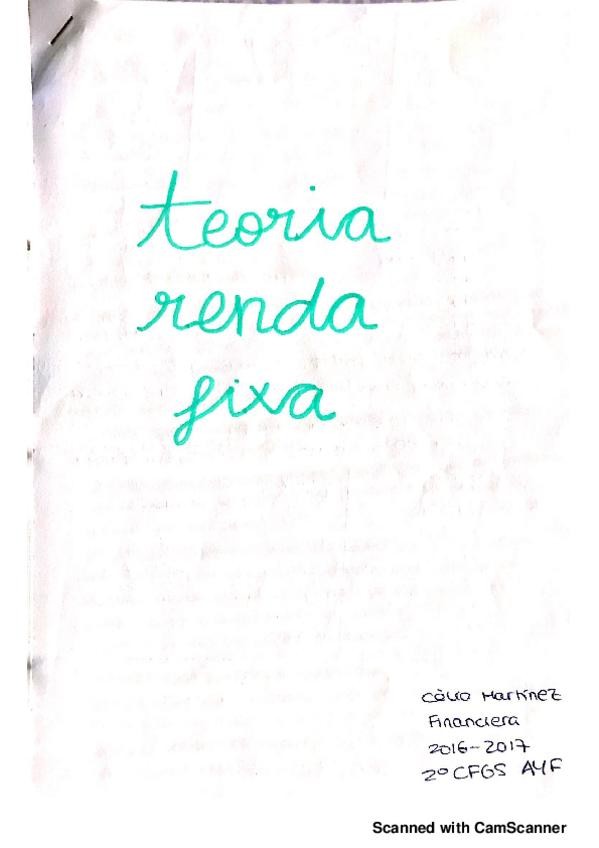 teoria
renda
fixa
Martínez
Financiera
2016-2017
2º CFGS AYF
Scanned with CamScanner